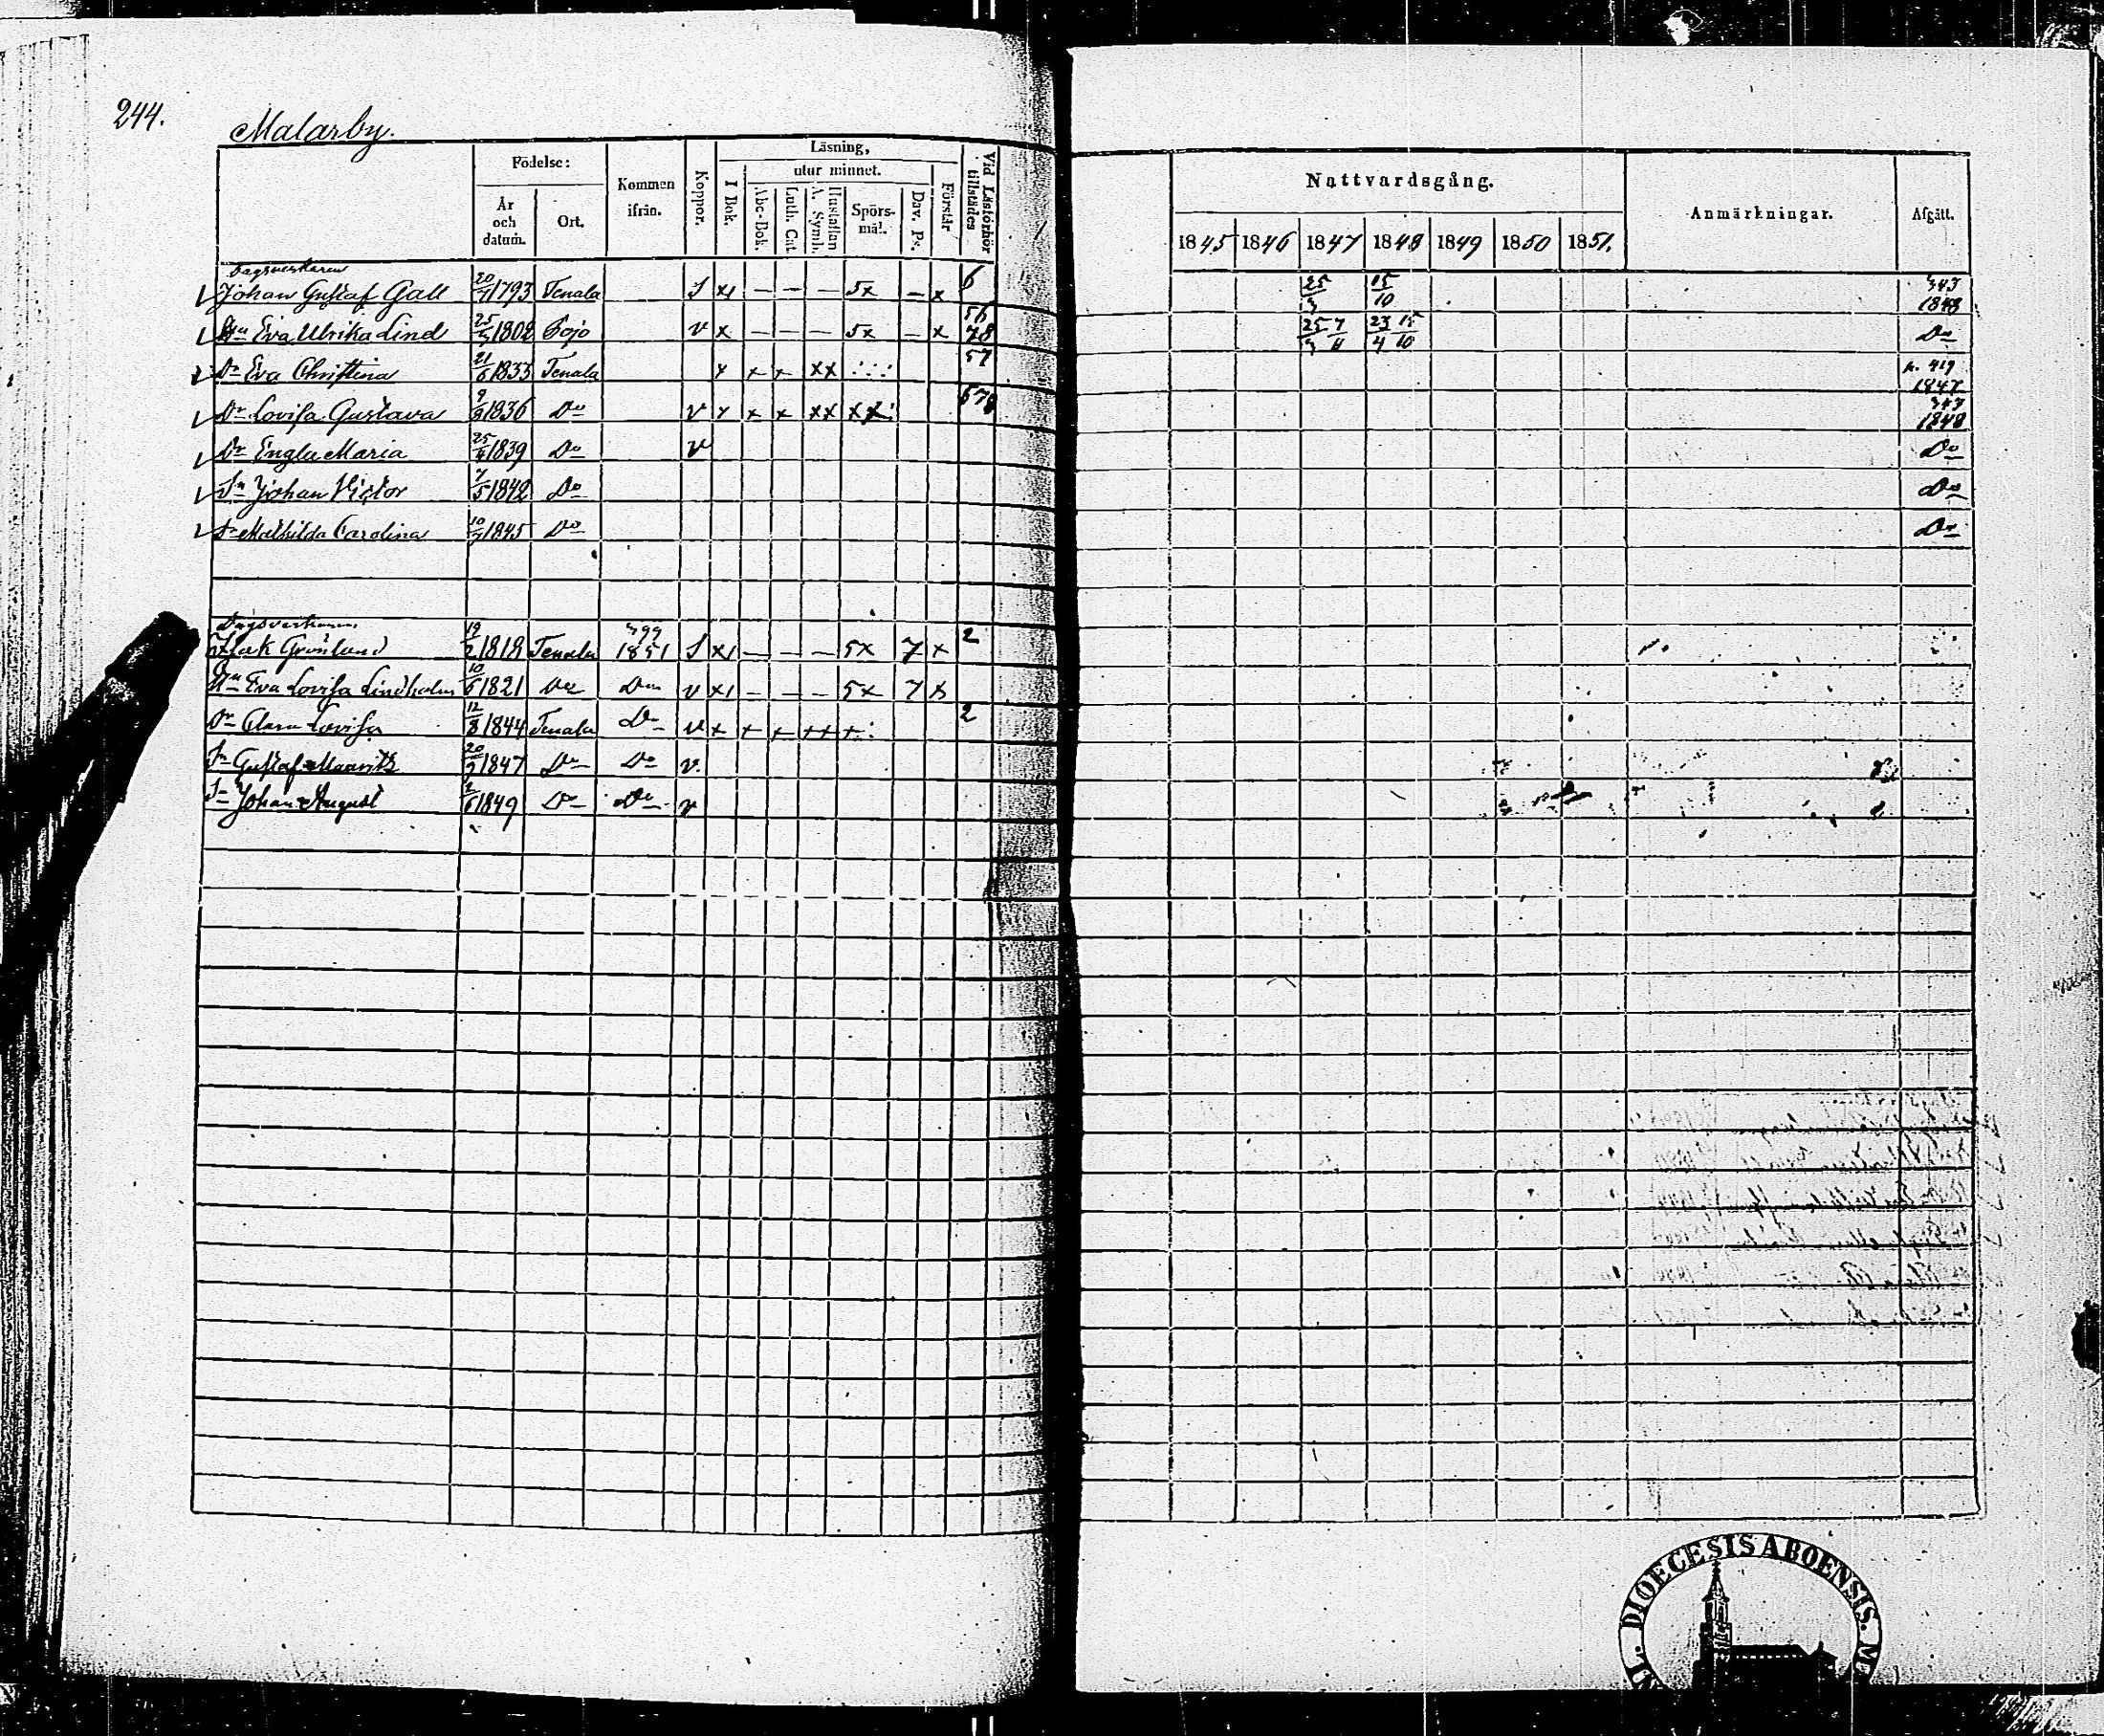 244.
Malarby.
Födelse: Kommen ifrån. Koppor. Läsning, Vid Läsförhör tillstädes
År och datum. Ort. I Bok. utur minnet. Förstår
Abc-Bok. Luth. Cat. Hustaflan A. Symb. Spörsmål. Dav. Ps.
Nattvardsgång. Anmärkningar. Afgått.
1845 1846 1847 1848 1849 1850 1851.
Dagsverkaren 6
Johan Gustaf Gall 1793 Tenala S x1 — — — 5x — x 25 15/10 343 1848
Hu Eva Ulrika Lind 25 1802 Pojo v x — — — 5x — x 56 78 25 7 23/4 15/10 Do
Dr Eva Christina 21/6 1833 Tenala x x x xx 57 p. 419 1847
Dr Lovisa Gustava 9/8 1836 Do v x x x xx xx 578 343 1848
Dr Engla Maria 25/4 1839 Do v Do
Sn Johan Victor 7/5 1842 Do Do
Dr Mathilda Carolina 10 1845 Do Do
Dagsverkaren
Isak Grönlund 19/2 1818 Tenala 399 1851 S x1 — — — 5x 7 x 2
Hu Eva Lovisa Lindholm 10/6 1821 Do Do v x1 — — — 5x 7 x
Dr Clara Lovisa 12/8 1844 Tenala Do v x x x xx x 2
Sn Gustaf Mauritz 20/9 1847 Do Do v.
Sn Johan August 2/6 1849 Do Do v
DIOECESIS ABOENSIS.